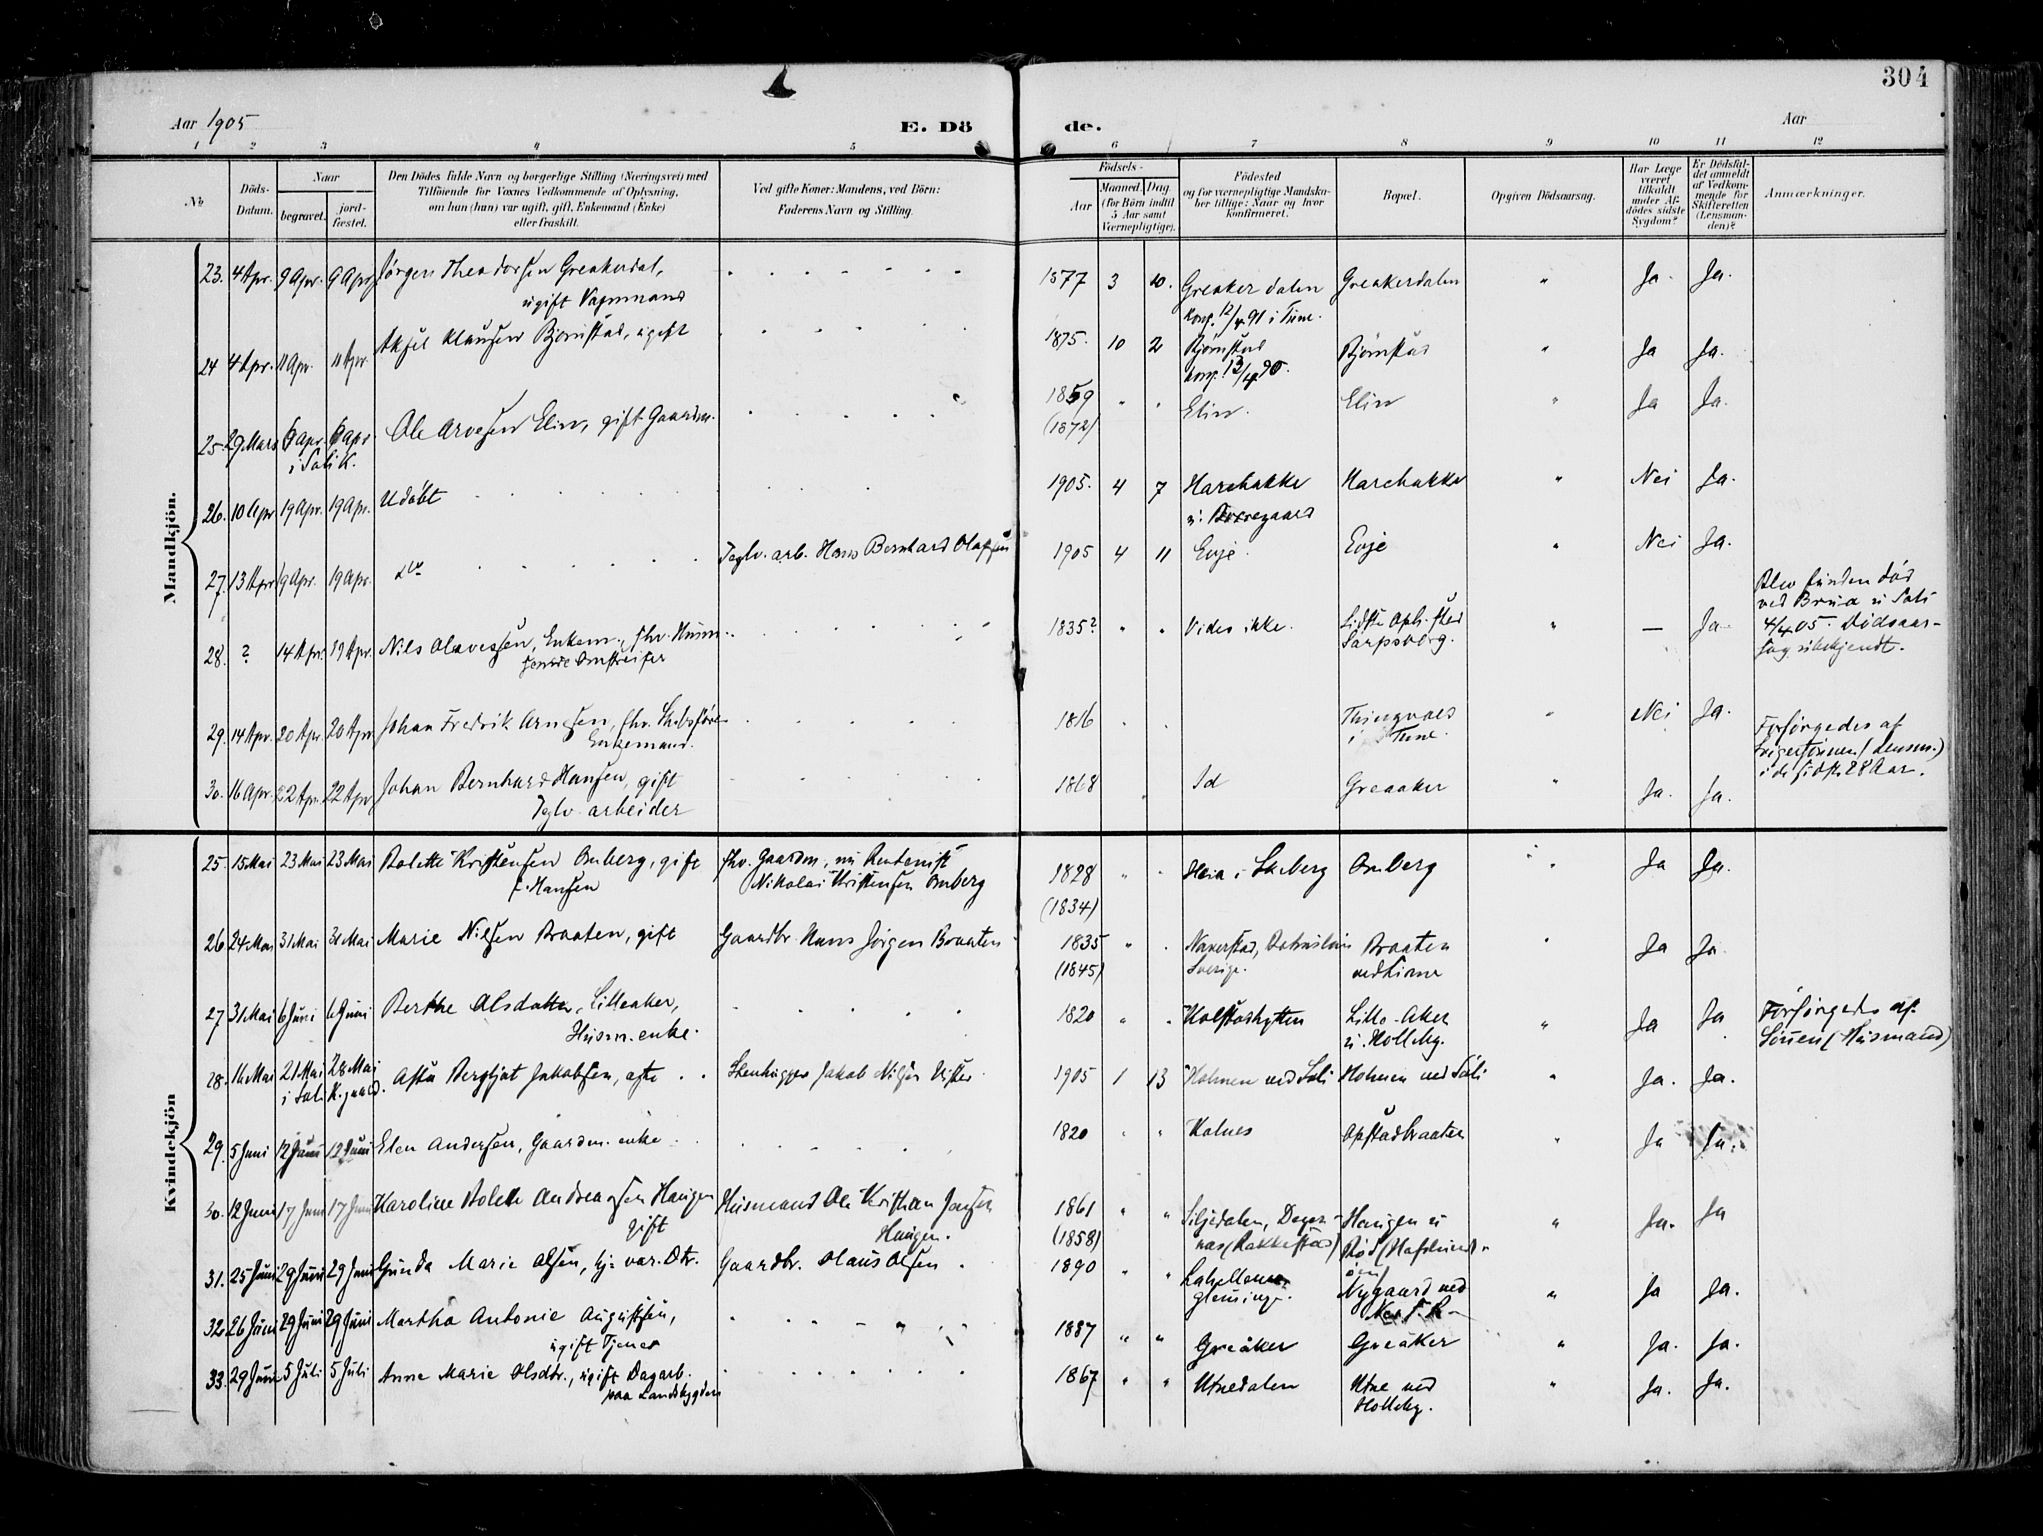 304
Aar 1905
E. Dö
de.
Aar
1 2 3 4 5 6 7 8 9 10 11 12
No
Döds-Datum.
Naar
begravet.
jord-fæstet.
Den Dödes fulde Navn og borgerlige Stilling (Næringsvei) med
Tilföiende för Voxnes Vedkommende af Oplysning,
om han (hun) var ugift, gift, Enkemand (Enke)
eller fraskilt.
Ved gifte Koner: Mandens, ved Börn:
Faderens Navn og Stilling.
Födsels-
Aar
Maaned. Dag.
(for Börn indtil
5 Aar samt
Værnepligtige).
Födested
og for værnepligtige Mandska-
ber tillige: Naar og hvor
konfirmeret.
Bopæl.
Opgiven Dödsaarsag.
Har Læge
været
tilkaldt
under Af-
dödes sidste
Sygdom?
Er Dödsfal-
det anmeldt
af Vedkom-
mende for
Skifteretten
(Lensman-
den)?
Anmærkninger.
Mandkjön.
23. 4 Apr. 9 Apr. 9 Apr. Jörgen Theodorsen Greakerdal, 1877 3 10. Greaker dalen Greakerdalen " Ja. Ja.
ugift Vognmand
Konf. 12/4 91 i Tune.
24 4 Apr. 11 Apr. 11 Apr. Aksel Klausen Bjørnstad, ugift 1875. 10 2 Bjørnstad Bjørnstad " Ja Ja.
konf. 13/4 90.
25. 29 Mars 6 Apr. 6 Apr. Ole Arvesen Elin, gift Gaardm. 1859 " " Elin. Elin " Ja Ja.
i Soli K.
(1872)
26. 10 Apr 19 Apr. 19 Apr. Udöbt 1905. 4 7 Harebakke Harebakke " Nei Ja.
u: Borregaard
27. 13 Apr 19 Apr. 19 Apr. do Teglv. arb. Hans Bernhard Olafsen 1905 4 11 Evje. Evje " Nei Ja.
28. ? 14 Apr. 19 Apr. Nils Olavessen, Enkem., fhv. Husm. 1835? " " Vides ikke. Sidste Oph. sted " — Ja
Omstreifer
Sarpsborg.
Blev funden död
ved Brua u Soli
4/4 05. Dödsaar-
sag ubekjendt.
29. 14 Apr. 20 Apr. 20 Apr. Johan Fredrik Arnesen, fhv. Skibsförer 1816 Thingvold " Nei Ja.
Enkemand.
i Tune.
Forsørgedes af
Svigersønnen (Lensm.)
i de sidste 28 Aar.
30. 16 Apr. 22 Apr. 22 Apr Johan Bernhard Hansen, gift 1868 Id Greaaker " Ja. Ja.
Teglv. arbeider
Kvindekjön
25. 15 Mai 23 Mai 23 Mai Bolette Kristensen Omberg, gift fhv. Gaardm., nu Rentenist 1828 " " Heia i Skeberg Omberg " Ja Ja.
f. Hansen Nikolai Kristensen Omberg (1834)
26 24 Mai 31 Mai 31 Mai Marie Nilsen Braaten, gift Gaardbr. Hans Jörgen Braaten 1835 " " Naverstad, Bohuslän Braaten " Ja Ja
(1845) Sverige.
27 31 Mai 6 Juni 6 Juni Berthe Olsdatter, Lilleaker, 1820 " " Kolstadhytten Lille-Aker " Ja Ja Forsørgedes af
Husm. enke. u. Holleby. Sönnen (Husmand)
28. 16 Mai 21 Mai 28 Mai Asta Bergljot Jakobsen, ægte Stenhugger Jakob Nilsen 1905 1 13 Holmen ved Soli Holmen ved Soli " Ja. Ja.
i Soli K. gaard.
29. 5 Juni 12 Juni 12 Juni Elen Andersen, Gaardm. enke 1820 " " Kolnes Opstadbraaten " Ja Ja.
30. 12 Juni 17 Juni 17 Juni Karoline Bolette Andreassen Haugen Husmand Ole Kristian Jensen 1861 " " Siljedalen, Degernæs (Rakkestad) Haugen u " Ja. Ja
gift Haugen. (1858) Röd (Hafslund)
31. 25 Juni 29 Juni 29 Juni Gunda Marie Olsen, Gj. var. Dtr. Gaardbr. Olaus Olsen 1890 " " Glemminge. Nygaard ved " Ja Ja.
32 26 Juni 29 Juni 29 Juni Martha Antonie Augustsen, 1887 " " Greåker Greåker " Ja. Ja.
ugift Tjener
33. 29 Juni 5 Juli 5 Juli Anne Marie Olsdtr., ugift Dagarb. 1867 " " Utnedalen Utne ved " Ja. Ja.
paa Landsbygden Holleby.